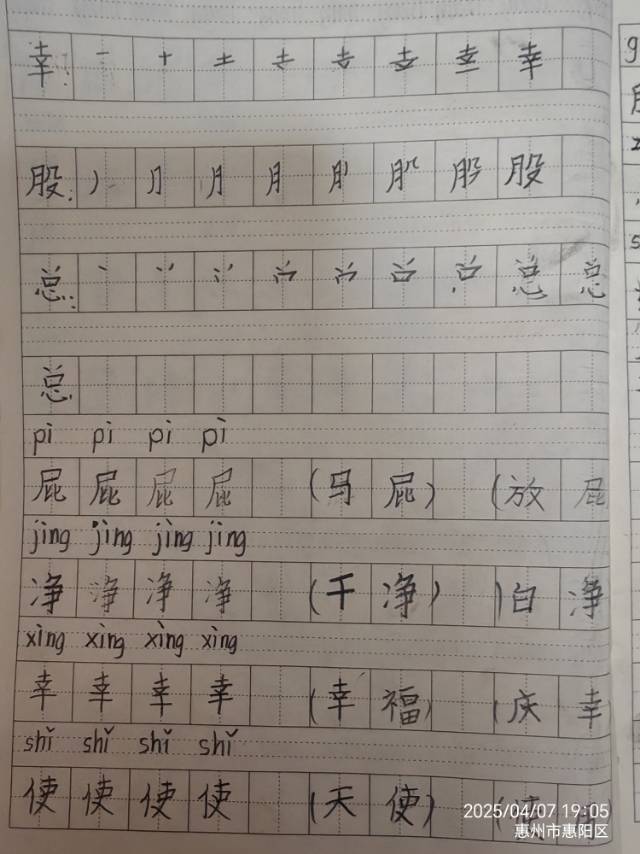 幸 一 十 土 幸
股 丿 月 月 股
总 丶 总 总
总
pì pì pì pì
屁 屁 屁 屁 (马 屁) (放 屁
jìng jìng jìng jìng
净 净 净 净 (干 净) (白 净
xìng xìng xìng xìng
幸 幸 幸 幸 (幸 福) (庆 幸
shǐ shǐ shǐ shǐ
使 使 使 使 (天 使) (
2025/04/07 19:05
惠州市惠阳区